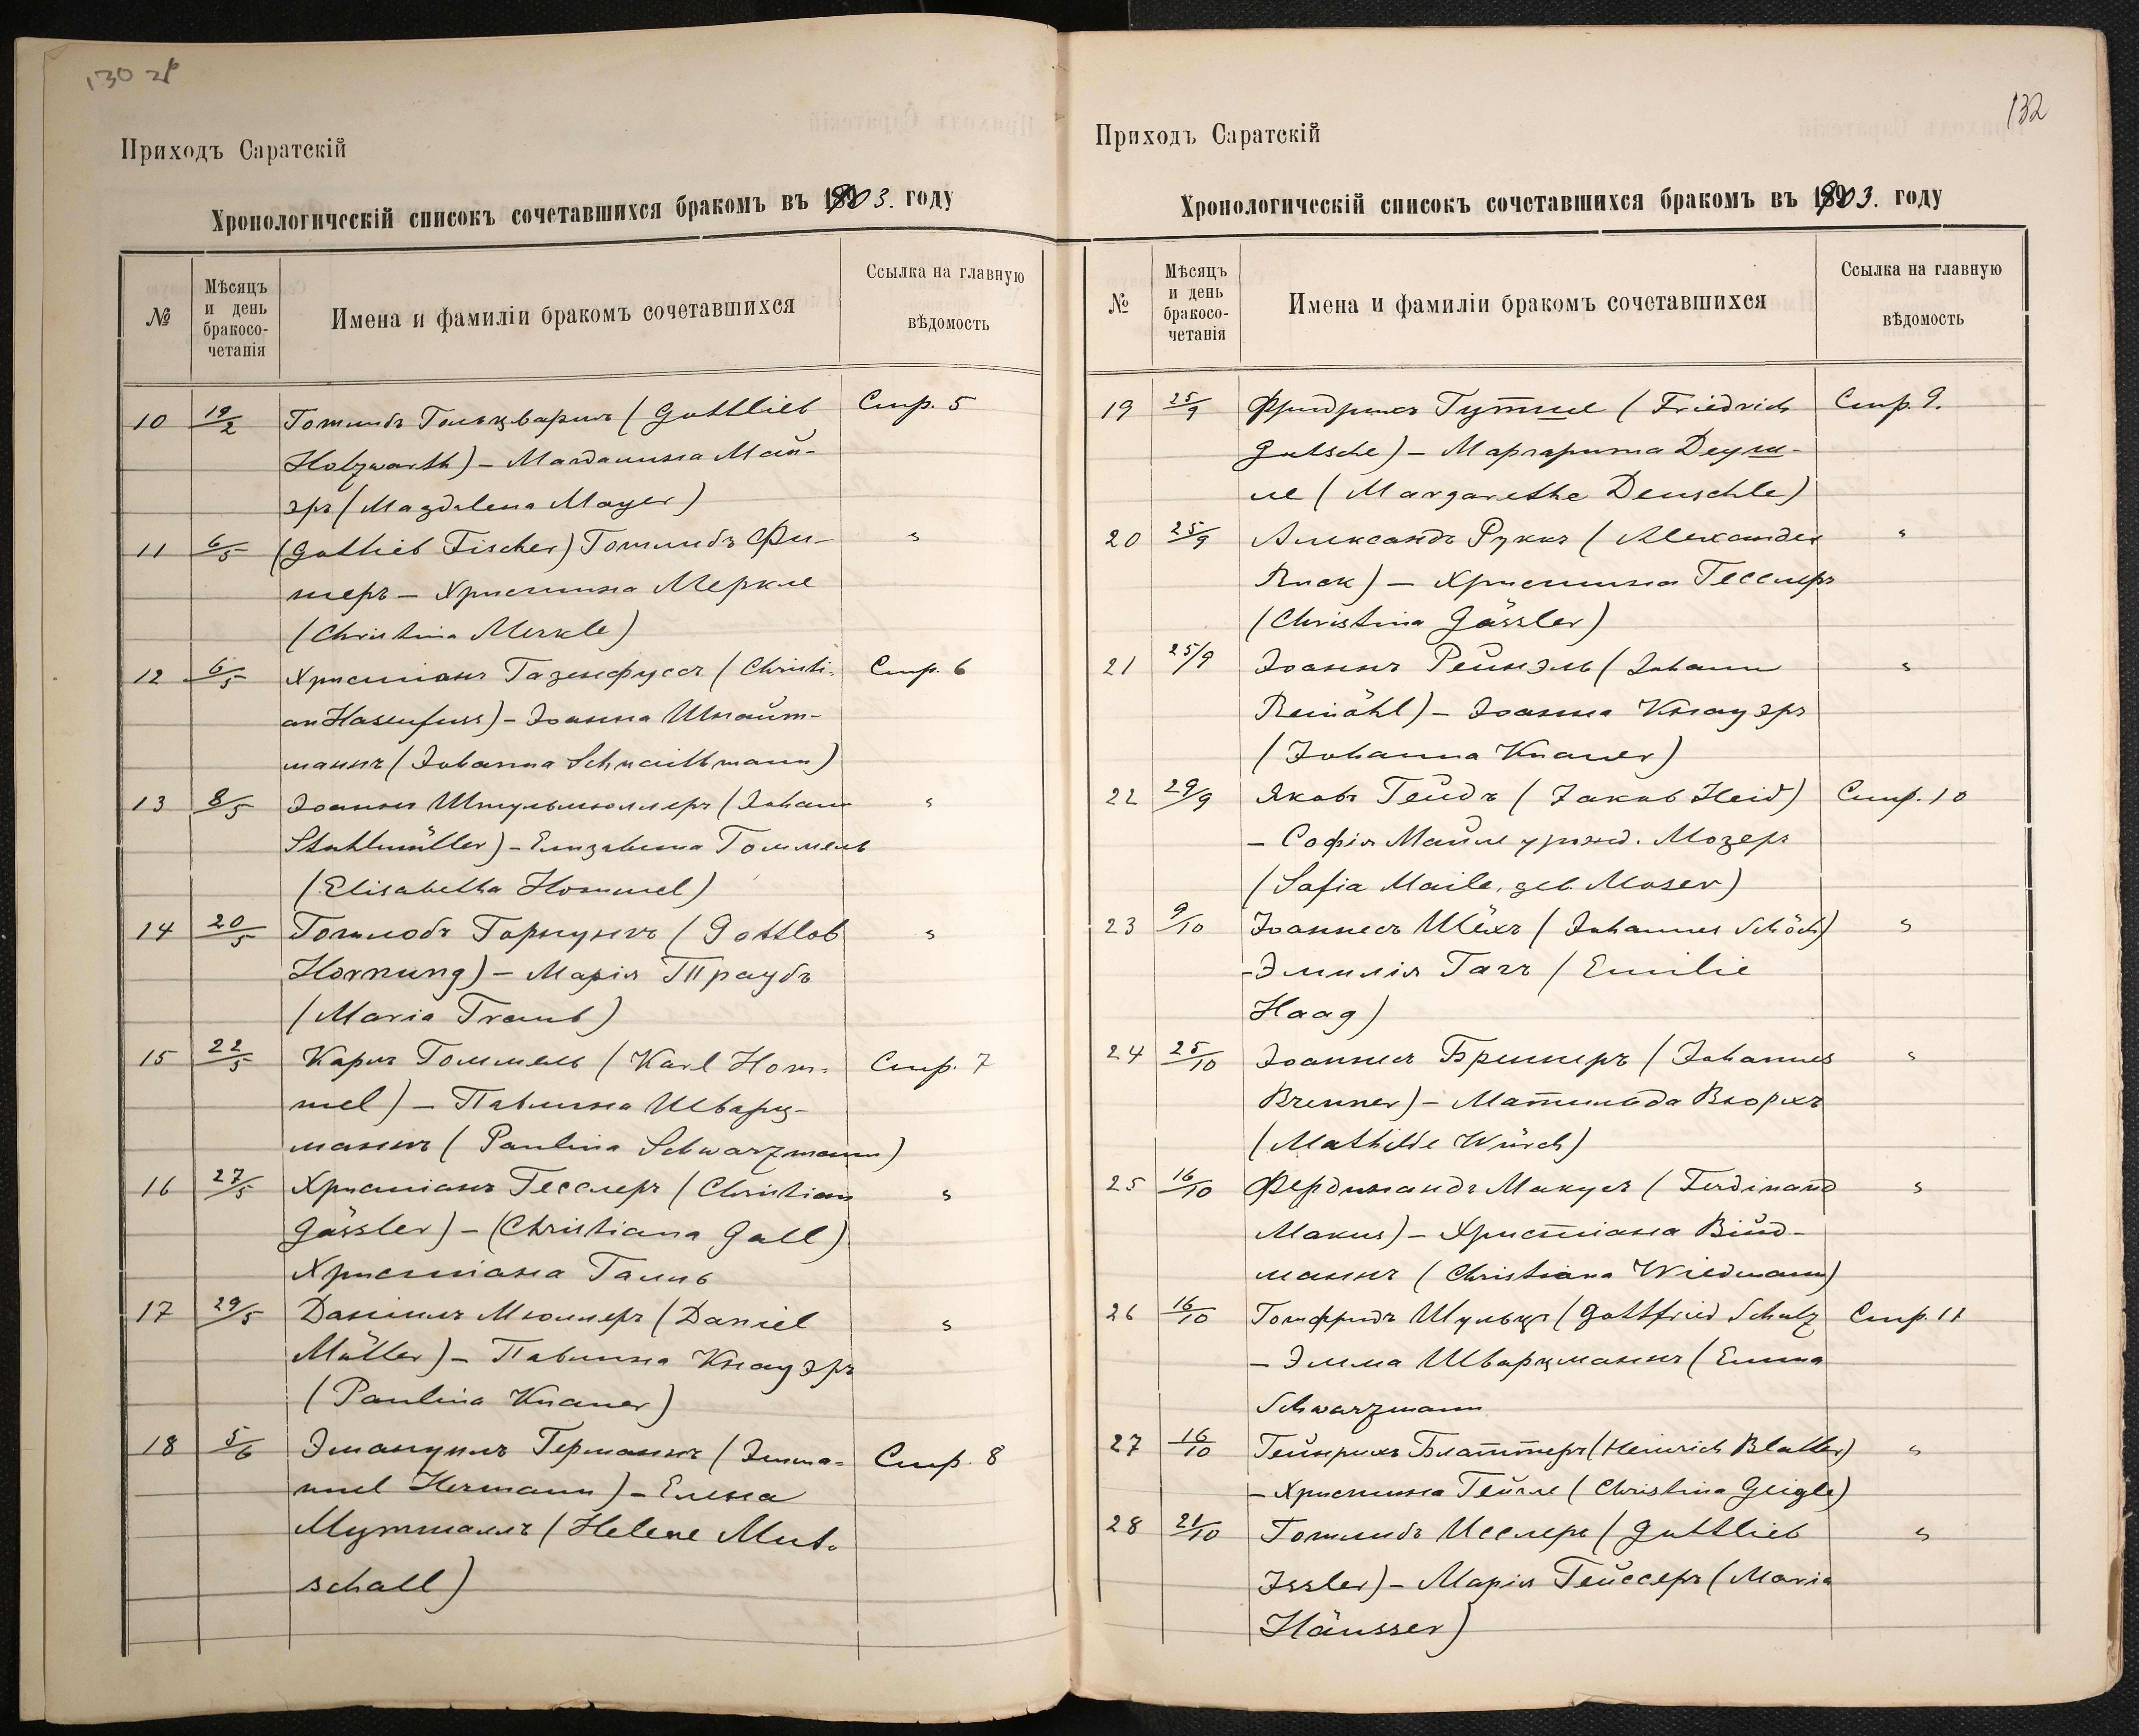 130 zł
Приходъ Саратскій
Хронологическій списокъ сочетавшихся бракомъ въ 1903. году
№
Мѣсяцъ
и день
бракосо-
четанія
Имена и фамиліи бракомъ сочетавшихся
Ссылка на главную
вѣдомость
10 19/2 Готлибъ Гольцвартъ (Gottlieb Стр. 5
Holzwarth) – Магдалина Май-
эръ (Magdalena Mayer)
11 6/5 (Gottlieb Fischer) Готлибъ Фи- "
шеръ – Христина Меркле
(Christina Merkle)
12 6/5 Христіанъ Газенфуссъ (Christi- Стр. 6
an Hasenfuss) – Іоанна Шнайт-
маннъ (Johanna Schnaithmann)
13 8/5 Іоаннъ Штульмюллеръ (Johann "
Stuhlmüller) – Елизавета Гоммель
(Elisabetha Hommel)
14 20/5 Готлобъ Горнунгъ (Gottlob "
Hornung) – Марія Траубъ
(Maria Traub)
15 22/5 Карлъ Гоммель (Karl Hom- Стр. 7
mel) – Павлина Шварц-
маннъ (Paulina Schwarzmann)
16 27/5 Христіанъ Гесслеръ (Christian "
Gässler) – (Christiana Gall)
Христіана Галль
17 29/5 Даніилъ Мюллеръ (Daniel "
Müller) – Павлина Кнауэръ
(Paulina Knauer)
18 5/6 Эмануилъ Германнъ (Imma- Стр. 8
nuel Hermann) – Елена
Мутшаллъ (Helene Mut-
schall)
132
Приходъ Саратскій
Хронологическій списокъ сочетавшихся бракомъ въ 1903. году
№
Мѣсяцъ
и день
бракосо-
четанія
Имена и фамиліи бракомъ сочетавшихся
Ссылка на главную
вѣдомость
19 25/9 Фридрихъ Гутше (Friedrich Стр. 9.
Gutsche) – Маргарита Деуш-
ле (Margarethe Deuschle)
20 25/9 Александъ Руккъ (Alexander "
Ruck) – Христина Гесслеръ
(Christina Gässler)
21 25/9 Іоаннъ Рейнэль (Johann "
Reinöhl) – Іоанна Кнауэръ
(Johanna Knauer)
22 29/9 Яковъ Гейдъ (Jakob Heid) Стр. 10
– Софія Майле урожд. Мозеръ
(Sofia Maile, geb. Moser)
23 9/10 Іоаннесъ Шёхъ (Johannes Schöch) "
– Эмилія Гагъ (Emilie
Haag)
24 25/10 Іоаннесъ Бреннеръ (Johannes "
Brenner) – Матильда Вюрхъ
(Mathilde Würch)
25 16/10 Фердинандъ Макусъ (Ferdinand "
Makus) – Христіана Види-
маннъ (Christiana Wiedmann)
26 16/10 Готфридъ Шульцъ (Gottfried Schulz Стр. 11
– Эмма Шварцманнъ (Emma
Schwarzmann
27 16/10 Гейнрихъ Блаттеръ (Heinrich Blatter) "
– Христина Гейгле (Christina Geigle)
28 21/10 Готлибъ Исслеръ (Gottlieb "
Issler) – Марія Гейссеръ (Maria
Häusser)